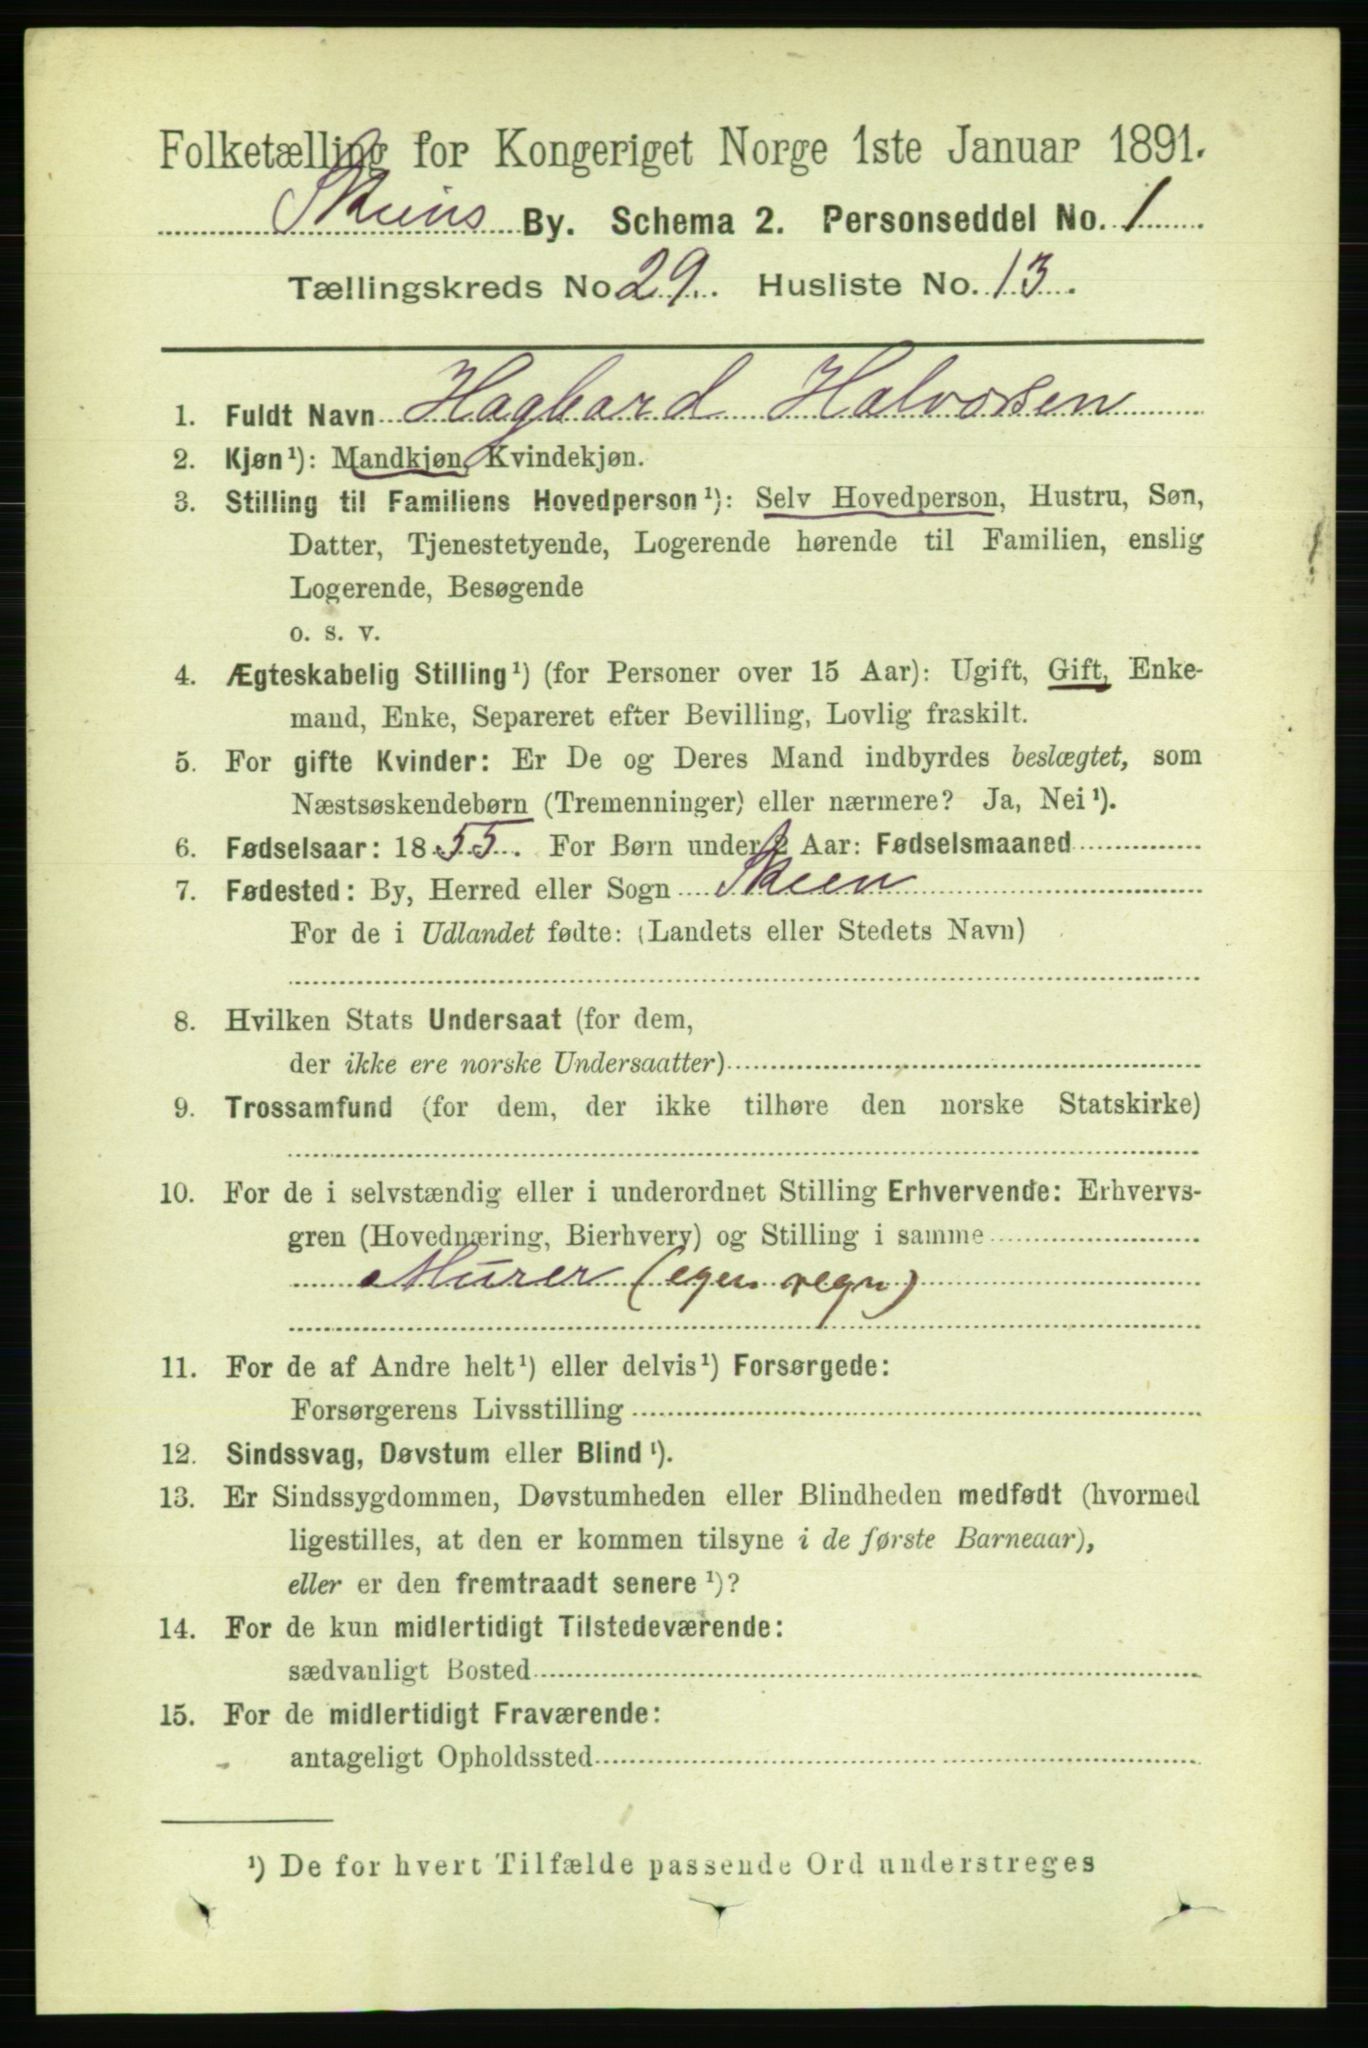 Folketælling for Kongeriget Norge 1ste Januar 1891.
Skiens By. Schema 2. Personseddel No. 1
Tællingskreds No 29. Husliste No. 13.
1. Fuldt Navn Hagbard Halvorsen
2. Kjøn¹): Mandkjøn, Kvindekjøn.
3. Stilling til Familiens Hovedperson¹): Selv Hovedperson, Hustru, Søn,
Datter, Tjenestetyende, Logerende hørende til Familien, enslig
Logerende, Besøgende
o. s. v.
4. Ægteskabelig Stilling¹) (for Personer over 15 Aar): Ugift, Gift, Enke-
mand, Enke, Separeret efter Bevilling, Lovlig fraskilt.
5. For gifte Kvinder: Er De og Deres Mand indbyrdes beslægtet, som
Næstsøskendebørn (Tremenninger) eller nærmere? Ja, Nei¹).
6. Fødselsaar: 1855. For Børn under 2 Aar: Fødselsmaaned
7. Fødested: By, Herred eller Sogn Skien
For de i Udlandet fødte: (Landets eller Stedets Navn)
8. Hvilken Stats Undersaat (for dem,
der ikke ere norske Undersaatter)
9. Trossamfund (for dem, der ikke tilhøre den norske Statskirke)
10. For de i selvstændig eller i underordnet Stilling Erhvervende: Erhvervs-
gren (Hovednæring, Bierhverv) og Stilling i samme
Murer (egen regn)
11. For de af Andre helt¹) eller delvis¹) Forsørgede:
Forsørgerens Livsstilling
12. Sindssvag, Døvstum eller Blind¹).
13. Er Sindssygdommen, Døvstumheden eller Blindheden medfødt (hvormed
ligestilles, at den er kommen tilsyne i de første Barneaar),
eller er den fremtraadt senere¹)?
14. For de kun midlertidigt Tilstedeværende:
sædvanligt Bosted
15. For de midlertidigt Fraværende:
antageligt Opholdssted
¹) De for hvert Tilfælde passende Ord understreges